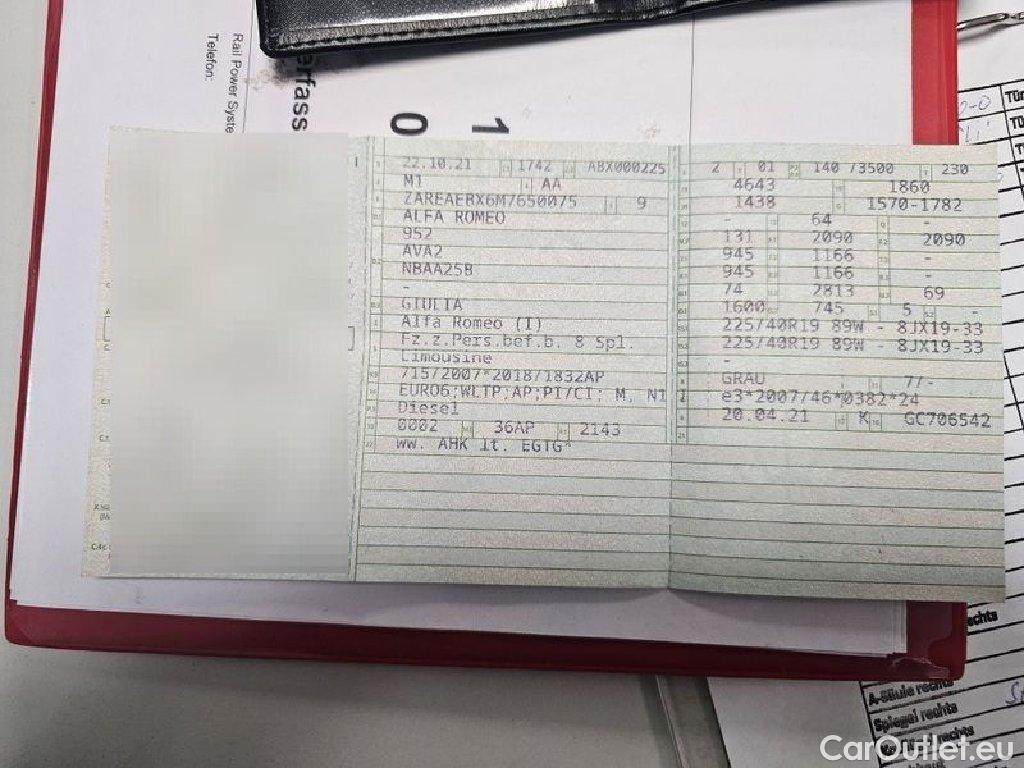 Rail Power Syste
Telefon:
erfass
0
1
22.10.21 1742 ABX000225
M1 AA
ZAREAEBX6M7650075 9
ALFA ROMEO
952
AVA2
NBAA25B
-
GIULIA
Alfa Romeo (I)
Fz.z.Pers.bef.b. 8 Spl.
Limousine
715/2007*2018/1832AP
EURO6;WLTP;AP;PI/CI; M, N1
Diesel
0002 36AP 2143
ww. AHK lt. EGTG*
2 01 140 /3500 230
4643 1860
1438 1570-1782
- 64 -
131 2090 2090
945 1166 -
945 1166 -
74 2813 69
1600 745 5 -
225/40R19 89W - 8JX19-33
225/40R19 89W - 8JX19-33
-
GRAU 7/-
e3*2007/46*0382*24
20.04.21 K GC706542
echts
A-Säule rechts
Spiegel rechts
rechts
CarOutlet.eu